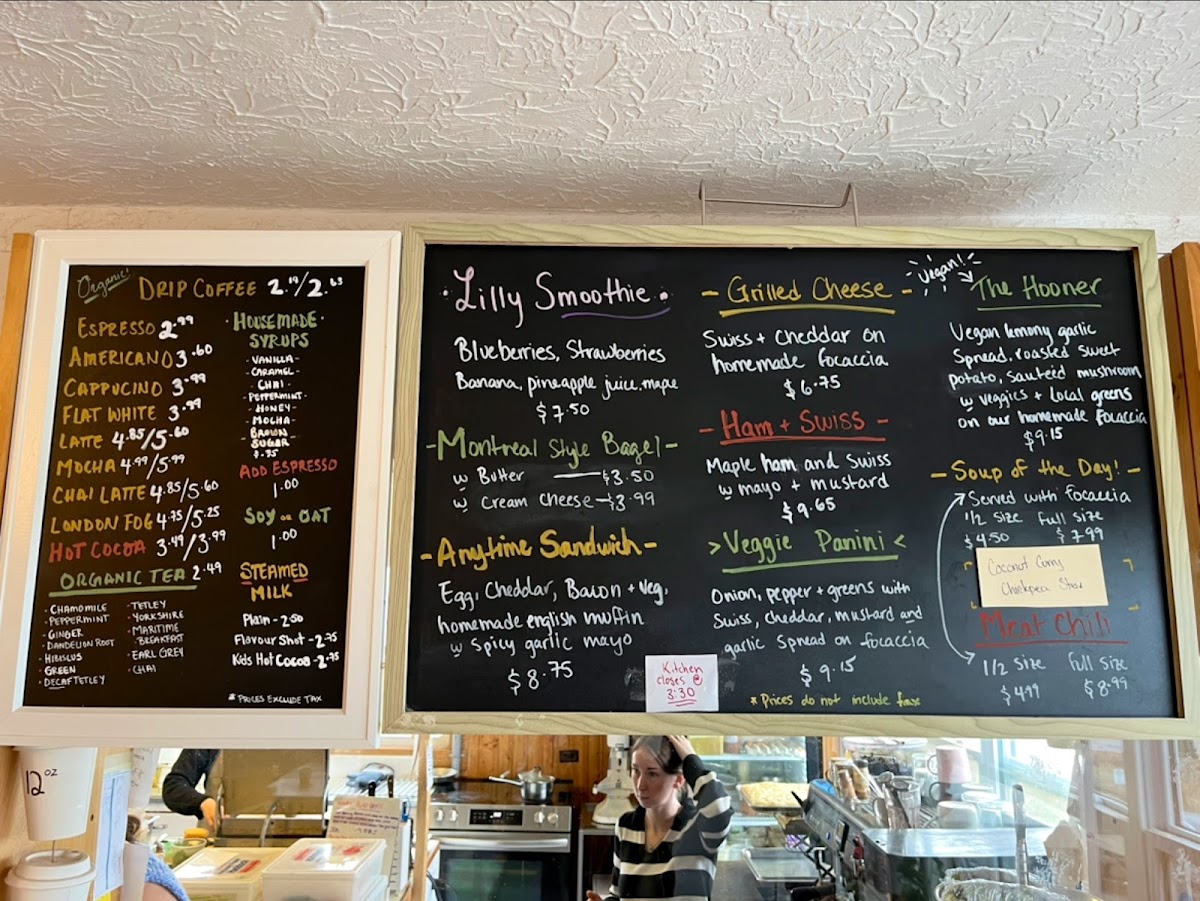 Organic!
DRIP COFFEE 2.19/2.63
ESPRESSO 2.99
AMERICANO 3.60
CAPPUCINO 3.99
FLAT WHITE 3.99
LATTE 4.85/5.60
MOCHA 4.99/5.99
CHAI LATTE 4.85/5.60
LONDON FOG 4.75/5.25
HOT COCOA 3.49/3.99
ORGANIC TEA 2.49
· CHAMOMILE
· PEPPERMINT
· GINGER
· DANDELION ROOT
· HIBISUS
· GREEN
· DECAF TETLEY
· TETLEY
· YORKSHIRE
· MARITIME
BREAKFAST
· EARL GREY
· CHAI
· HOUSEMADE ·
SYRUPS
- VANILLA -
- CARAMEL -
- CHAI -
- PEPPERMINT -
- HONEY -
- MOCHA -
- BROWN -
SUGAR
ADD ESPRESSO
1.00
SOY or OAT
1.00
STEAMED
MILK
Plain - 2.50
Flavour Shot - 2.75
Kids Hot Cocoa - 2.75
* PRICES EXCLUDE TAX
· Lilly Smoothie ·
Blueberries, Strawberries
Banana, pineapple juice, mape
$7.50
- Montreal Style Bagel -
w Butter — $3.50
w Cream Cheese — $3.99
- Anytime Sandwich -
Egg, Cheddar, Bacon + veg,
homemade english muffin
w spicy garlic mayo
$8.75
- Grilled Cheese -
Swiss + Cheddar on
homemade focaccia
$6.75
- Ham + Swiss -
Maple ham and Swiss
w mayo + mustard
$9.65
> Veggie Panini <
Onion, pepper + greens with
Swiss, cheddar, mustard and
garlic spread on focaccia
$9.15
Kitchen
closes @
3:30
* Prices do not include tax
Vegan!
The Hooner
Vegan lemony garlic
Spread, roasted sweet
potato, sauteid mushroom
w veggies + local greens
on our homemade focaccia
$9.15
- Soup of the Day! -
Served with focaccia
1/2 size Full size
$4.50 $7.99
Coconut Curry
Chickpea Stew
Meat Chili
1/2 size Full size
$4.99 $8.99
12oz